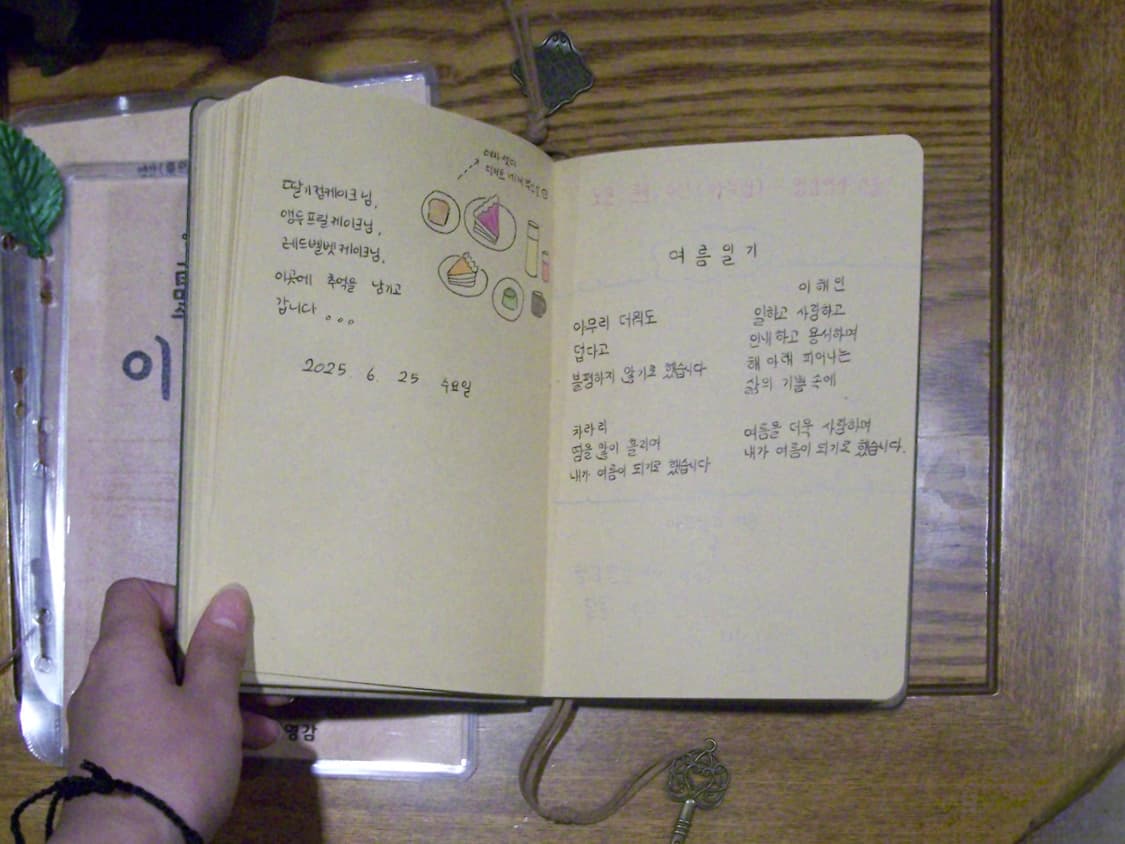 딸기컵케이크님,
앵두프릴케이크님,
레드벨벳케이크님,
이곳에 추억을 남기고
갑니다 。。。
2025. 6. 25 수요일
여름일기
이해인
아무리 더워도
덥다고
불평하지 않기로 했습니다
차라리
땀을 많이 흘리며
내가 여름이 되기로 했습니다
일하고 사랑하고
인내하고 용서하며
해 아래 피어나는
삶의 기쁨 속에
여름을 더욱 사랑하며
내가 여름이 되기로 했습니다.
영감